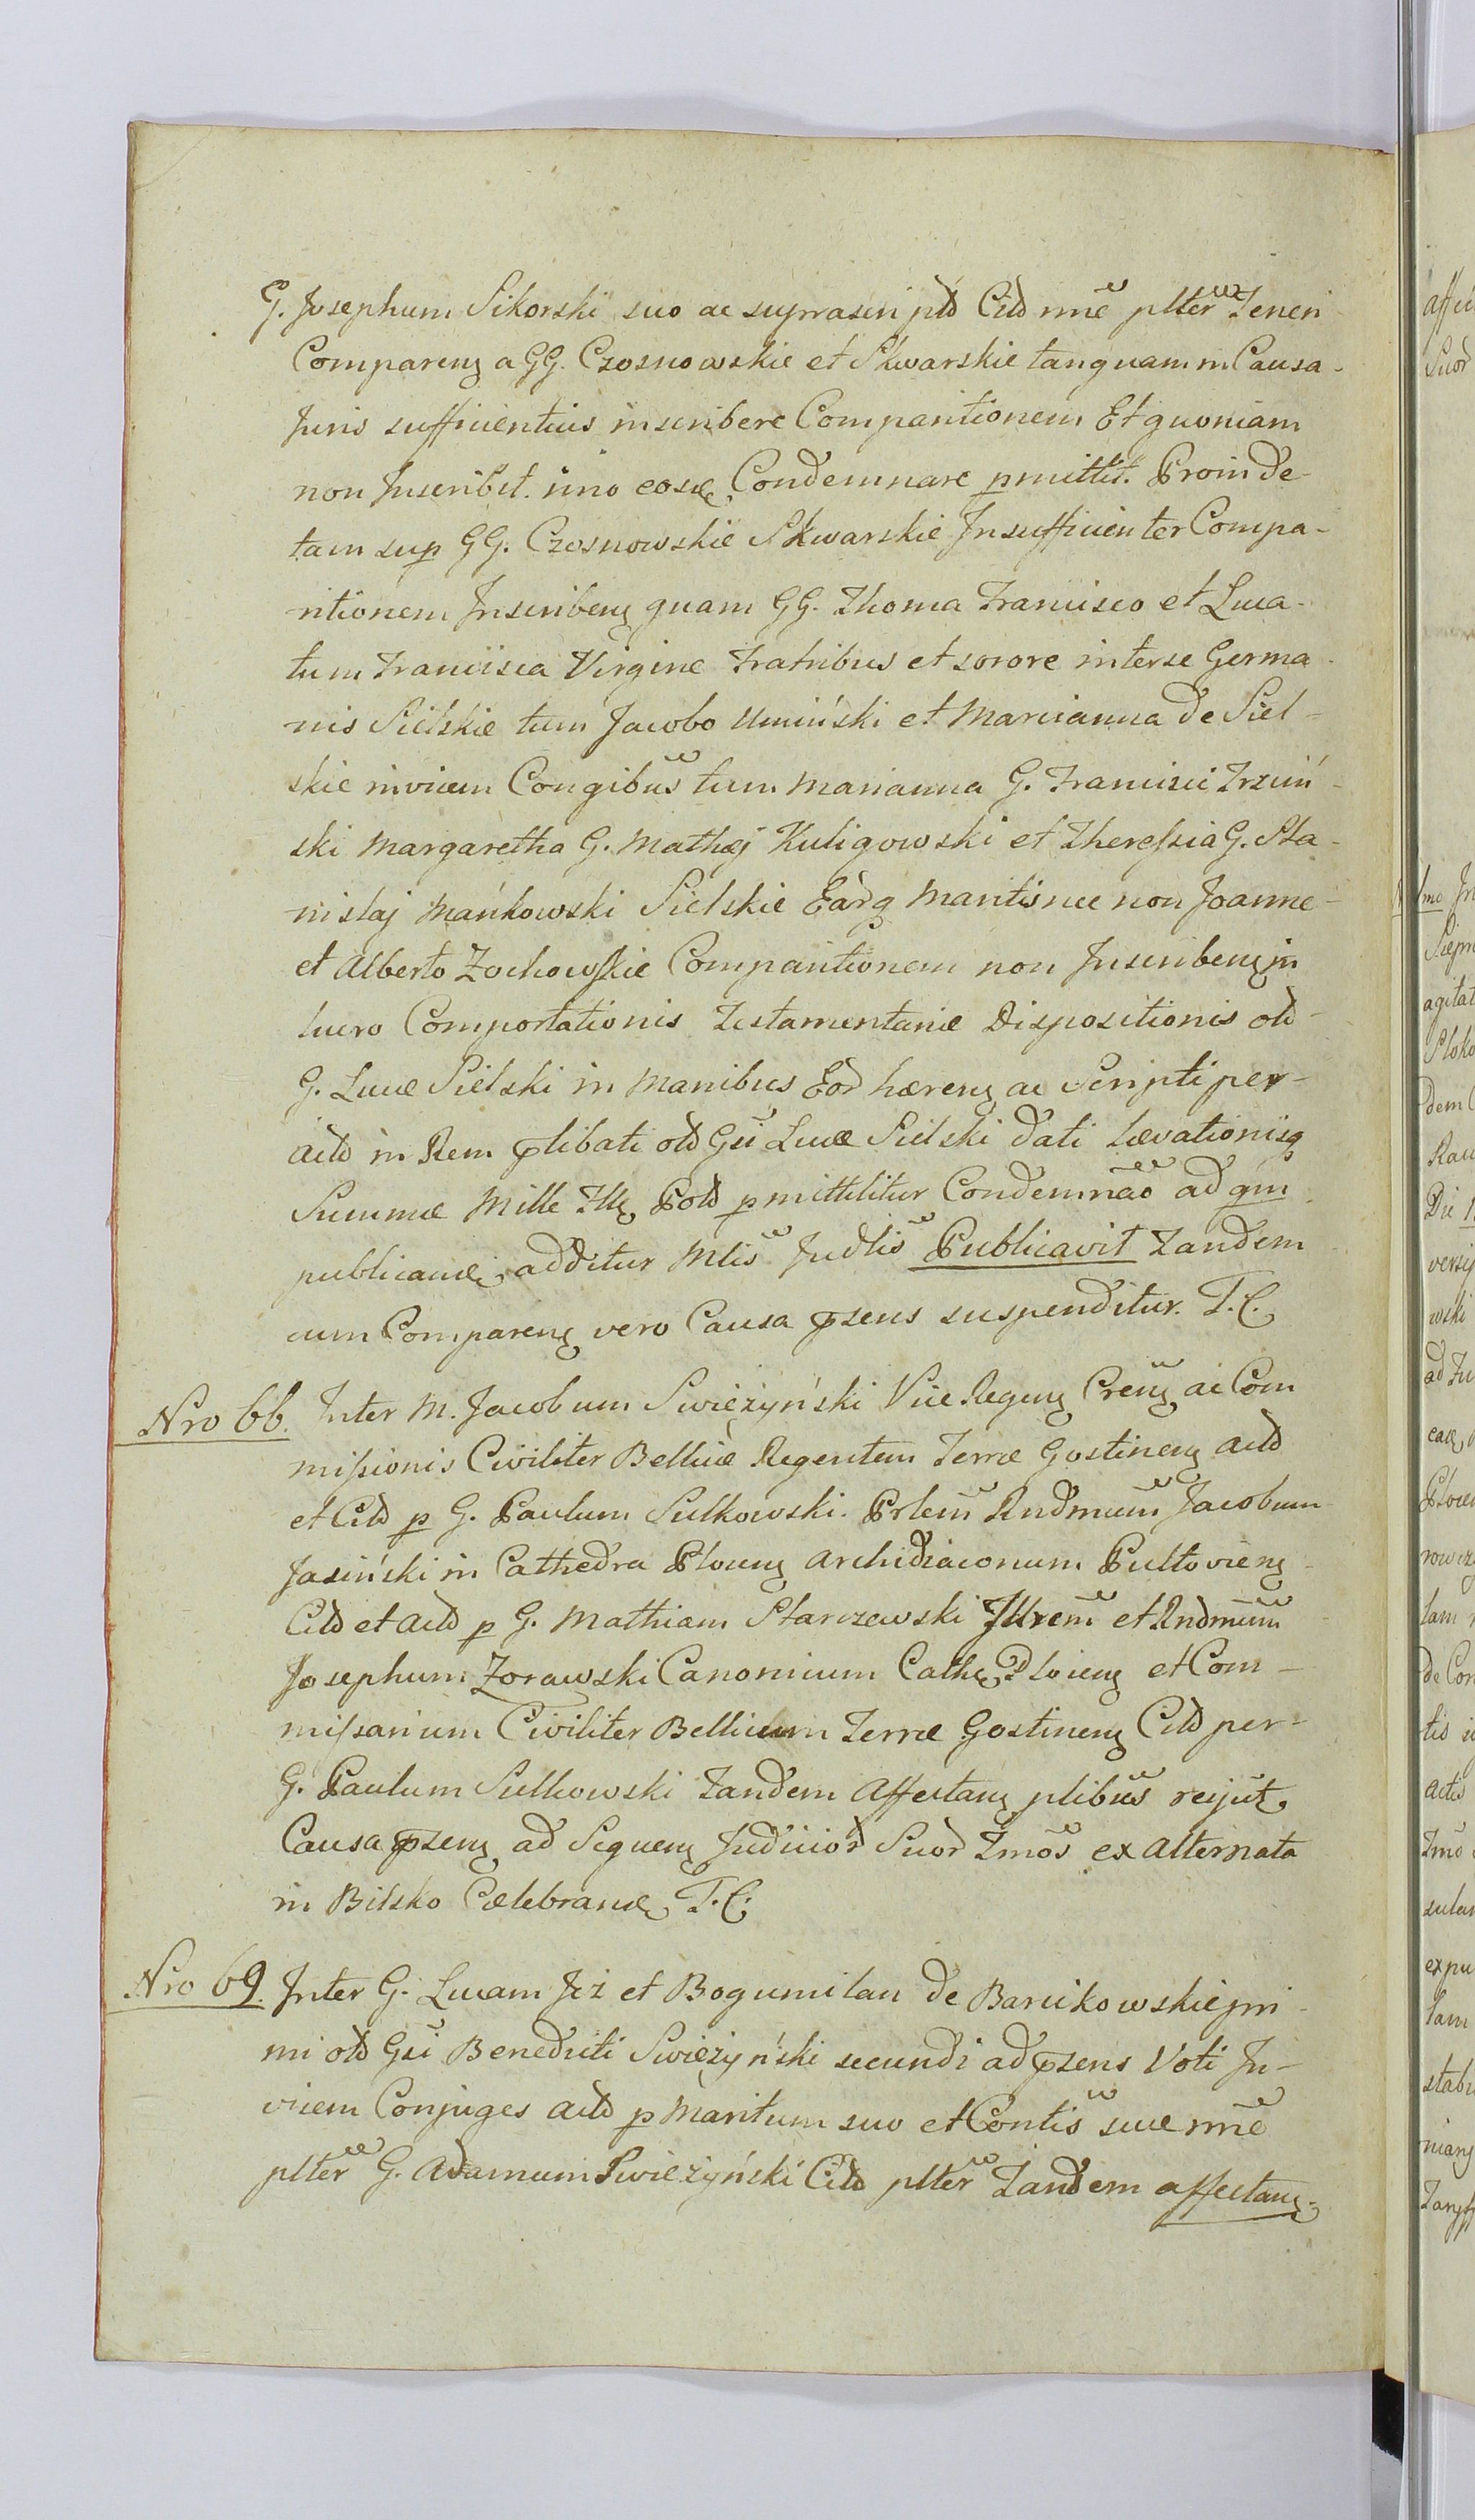 G. Josephum Sikorski suo ac suprascriptd Citd nne plter Teneri
Comparenz a GG. Czosnowskie et Skwarskie tanquam in Causa
Juris sufficientius inscribere Comparitionem Et quoniam
non Inscribit. imo eosdz Condemnare pmittit. Proinde
tam sup GG. Czosnowskie Skwarskie Insufficienter Compa-
ritionem Inscribenz quam GG. Thoma Francisco et Luca
tum Francisca Virgine Fratribus et sorore inter se Germa-
nis Sielskie tum Jacobo Umiński et Marcianna de Siel-
skie invicem Congibus tum Marianna G. Francisci Trzciń-
ski Margaretha G. Mathæj Kuligowski et Theressia G. Sta-
nislaj Mańkowski Sielskie Eardq Maritis nec non Joanne
et Alberto Zochowskie Comparitionem non Inscribenz in
lucro Comportationis Testamentariæ Dispositionis old
G. Lucæ Sielski in Manibus Eord hærenz ac Scripti per
actd in Rem plibati old Gsi Lucæ Sielski dati Lævationisq
Summæ Mille Flz Pold pmittilitur Condemnao ad qm
publicandz additur Mlis Judlis Publicavit Tandem
cum Comparenz vero Causa psens suspenditur. T.C.
Nro 66. Inter M. Jacobum Swieżyński Vice Regenz Crenz ac Com
missionis Civiliter Bellicæ Regentem Terræ Gostinenz actd
et Citd p G. Paulum Sulkowski. Prlem Rndmum Jacobum
Jasiński in Cathedra Plocenz Archidiaconum Pultovienz
Citd et actd p G. Mathiam Starczewski Illrem et Rndmum
Josephum Zorawski Canonicum Cathz Plocenz et Com-
missarium Civiliter Bellicum Terræ Gostinenz Citd per
G. Paulum Sulkowski Tandem Affectanz ptibus rejcit
Causa psenz ad Sequenz Judiciord Suord Tmos ex alternata
in Bilsko Celebrandz T.C.
Nro 69. Inter G. Lucam Jeż et Bogumilan de Barcikowskie pri-
mi old Gsi Benedicti Swieżyński secundi ad psens Voti In-
vicem Conjuges actd p Maritum suo et Contis suæ nne
plter G. Adamum Swieżyński Citd plter Tandem affectanz